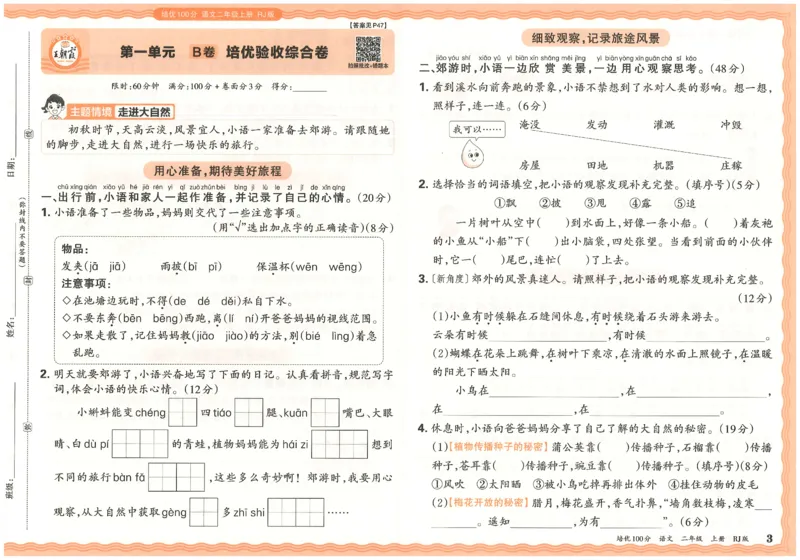 培优100分 语文二年级上册 RJ版
【答案见P47】
王朝霞
第一单元 B卷 培优验收综合卷
扫码批改+错题本
限时:60分钟 满分:100分+卷面分3分 得分:
主题情境 走进大自然
初秋时节,天高云淡,风景宜人,小语一家准备去郊游。请跟随她
的脚步,走进大自然,进行一场快乐的旅行。
用心准备,期待美好旅程
chū xíng qián xiǎo yǔ hé jiā rén yì qǐ zuò zhǔn bèi bìng jì lù le zì jǐ de xīn qíng
一、出行前,小语和家人一起作准备,并记录了自己的心情。(20分)
1. 小语准备了一些物品,妈妈则交代了一些注意事项。
(用“√”选出加点字的正确读音)(8分)
物品:
发夹(jā jiā) 雨披(bī pī) 保温杯(wēn wēng)
注意事项:
◇在池塘边玩时,不得(de dé děi)私自下水。
◇不要东奔(bēn bēng)西跑,离(lí ní)开爸爸妈妈的视线范围。
◇如果走散了,记住妈妈教(jiāo jiào)的方法,别(bié líng)着急
乱跑。
2. 明天就要郊游了,小语兴奋地写了下面的日记。认真看拼音,规范写字
词,体会小语的快乐心情。(12分)
小蝌蚪能变chéng 四tiáo 腿、kuān 嘴巴、大眼
睛、白dù pí 的青蛙,植物妈妈能为hái zi 想到
不同的旅行bàn fǎ ,这些多么奇妙啊! 郊游时,我要用心
观察,从大自然中获取gèng 多zhī shi ……
日期:
姓名:
班级:
(你封线内不要答题)
细致观察,记录旅途风景
jiāo yóu shí xiǎo yǔ yì biān xīn shǎng měi jǐng yì biān yòng xīn guān chá sī kǎo
二、郊游时,小语一边欣赏美景,一边用心观察思考。(48分)
1. 看到溪水向前奔跑的景象,小语不禁想到了水对人类的影响。想一想,
照样子,连一连。(6分)
我可以…… 淹没 发动 灌溉 冲毁
房屋 田地 机器 庄稼
2. 选择恰当的词语填空,把小语的观察发现补充完整。(填序号)(5分)
①飘 ②披 ③甩 ④露 ⑤追
一片树叶从空中( )到水面上,好像一条小船。( )着灰袍
的小鱼从“小船”下( )出小脑袋,四处张望。当看到前面的小伙伴
时,它一( )尾巴,连忙( )了上去。
3.〔新角度〕郊外的风景真迷人。请照样子,把小语的观察发现补充完整。
(12分)
(1)小鱼有时候躲在石缝间休息,有时候绕着石头游来游去。
云朵有时候 ,有时候 。
(2)蝴蝶在花朵上跳舞,在树叶下乘凉,在清澈的水面上照镜子,在温暖
的阳光下晒太阳。
小鸟在 ,在 ,
在 ,在 。
4. 休息时,小语向爸爸妈妈分享了自己了解的大自然的秘密。(19分)
(1)【植物传播种子的秘密】蒲公英靠( )传播种子,石榴靠( )传播
种子,苍耳靠( )传播种子,豌豆靠( )传播种子。(填序号)(8分)
①风吹 ②太阳晒 ③被小鸟吃掉再排出体外 ④挂住动物的皮毛
(2)【梅花开放的秘密】腊月,梅花盛开,香气扑鼻,“墙角数枝梅,凌寒
。遥知 ,为有 ”。(6分)
培优100分 语文 二年级 上册 RJ版 3